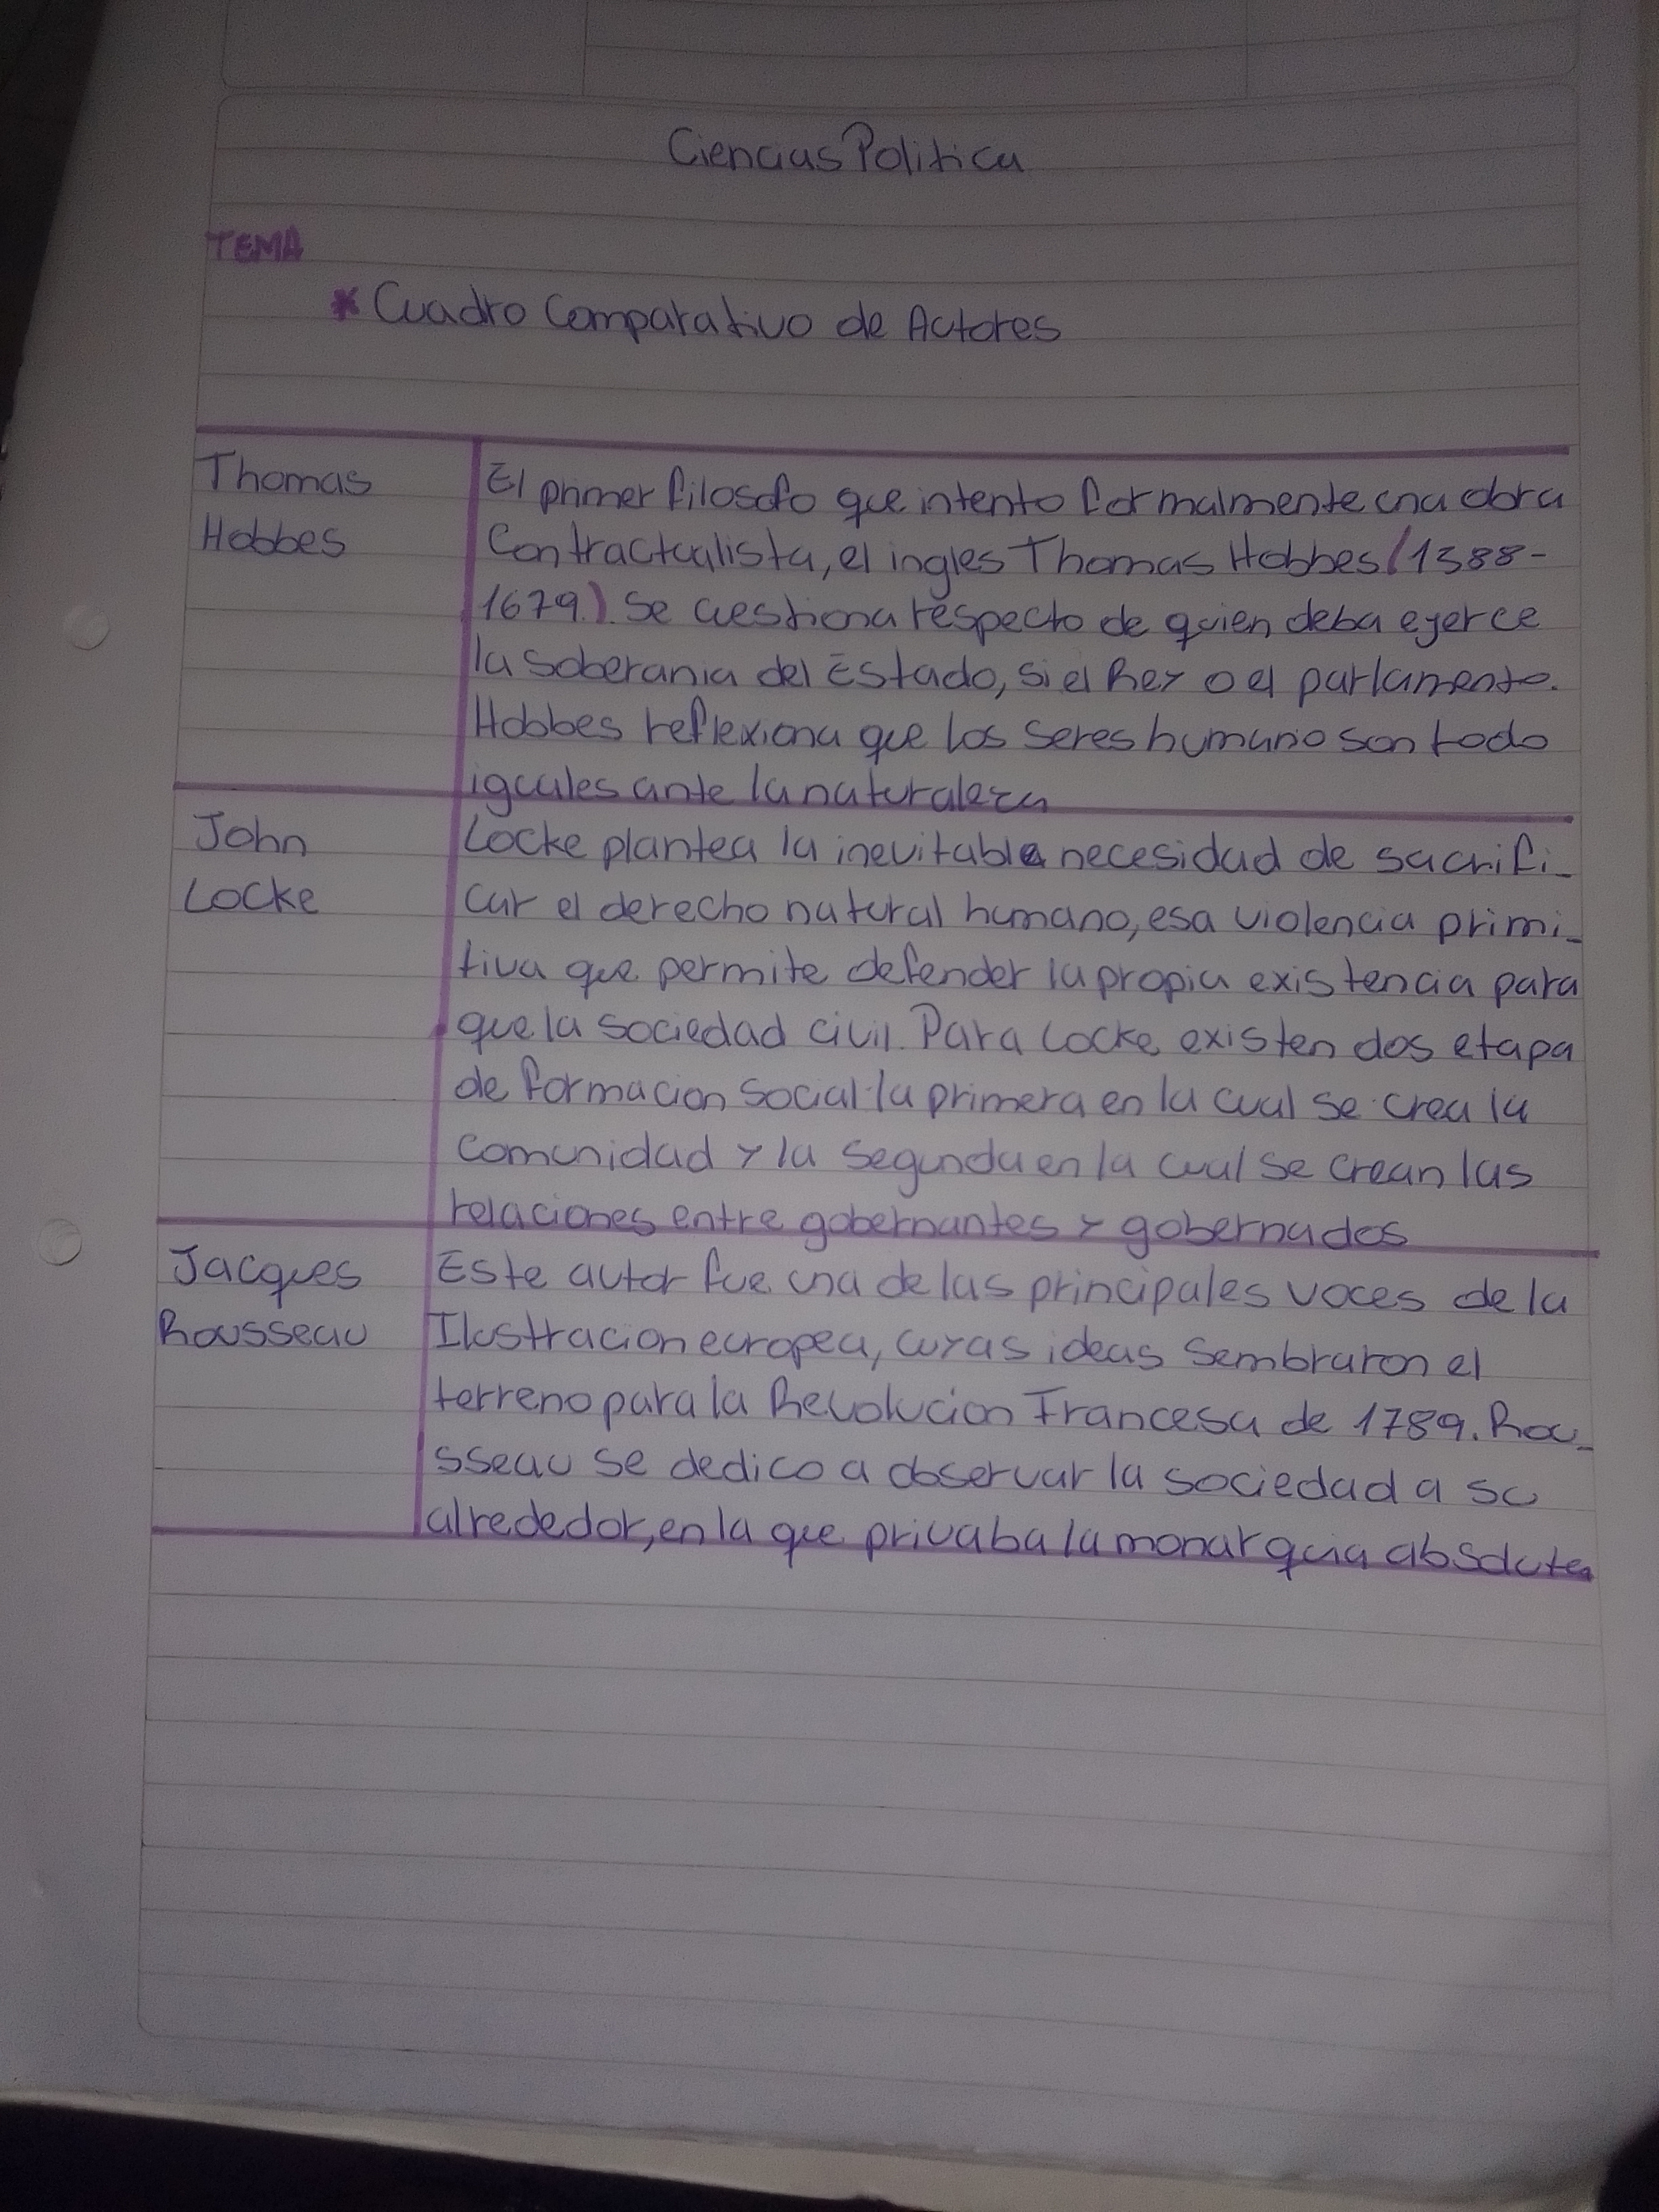 Ciencias Politica
TEMA
* Cuadro Comparativo de Autores
Thomas
Hobbes
El primer filosofo que intento formalmente una obra
Contractualista, el ingles Thomas Hobbes (1388-
1679.). Se cuestiona respecto de quien deba ejerce
la Soberania del Estado, si el Rey o el parlamento.
Hobbes reflexiona que los seres humano son todo
iguales ante la naturaleza
John
Locke
Locke plantea la inevitable necesidad de sacrifi-
car el derecho natural humano, esa violencia primi-
tiva que permite defender la propia existencia para
que la sociedad civil. Para Locke existen dos etapa
de formacion social la primera en la cual se crea la
Comunidad y la Segunda en la cual se crean las
relaciones entre gobernantes y gobernados
Jacques
Rousseau
Este autor fue una de las principales voces de la
Ilustracion europea, cuyas ideas Sembraron el
terreno para la Revolucion Francesa de 1789. Rou-
sseau se dedico a observar la sociedad a su
alrededor, en la que privaba la monarquia absoluta